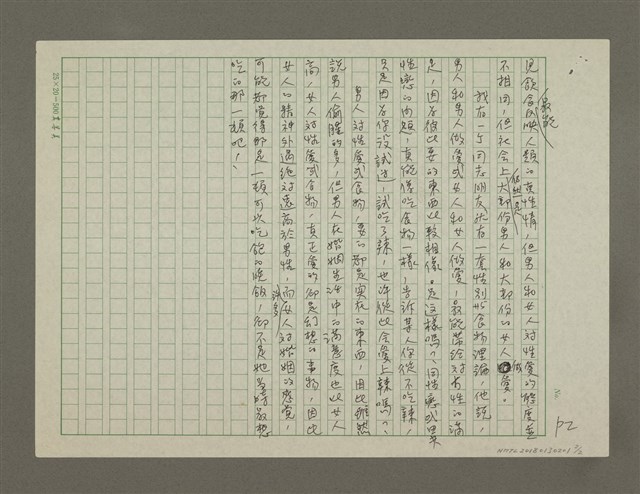 最能
見飲食反映人類的真性情，但男人和女人對性愛的態度並
不相同，但社會上大部份男人和大部份的女人做愛。
我有一個同志朋友就有一套性別與食物理論，他說，
男人和男人做愛或女人和女人做愛，最能帶給對方性的滿
足，因為彼此要的東西比較相像。是這樣嗎？同性戀或異
性戀的問題，真能像吃食物一樣，告訴某人你從不吃辣，
只是因為你沒試過，試吃了辣，也許從此會愛上辣嗎？
男人對性愛或食物，要的都是實在的東西，因此雖然
說男人偷腥的多，但男人在婚姻生活中的滿意度也比女人
高，女人對性愛或食物，真正愛的卻是幻想的事物，因此
女人的精神外遇絕對遠高於男性，而女人對婚姻的感覺，
可能都覺得那是一頓可以吃飽的晚飯，卻不是她當時最想
吃的那一頓吧！
P2
25×20=500
NMTL20180120201